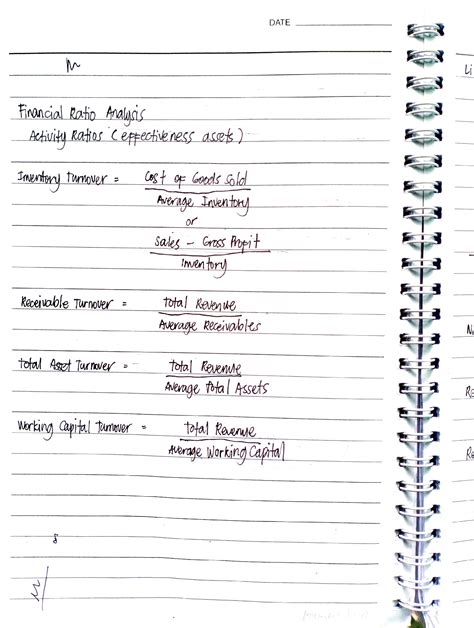 DATE
Financial Ratio Analysis
Activity Ratios (effectiveness assets)
Inventory Turnover = Cost of Goods Sold
Average Inventory
or
Sales - Gross Profit
Inventory
Receivable Turnover = Total Revenue
Average Receivables
Total Asset Turnover = Total Revenue
Average Total Assets
Working Capital Turnover = Total Revenue
Average Working Capital
Li
N
Re
Re